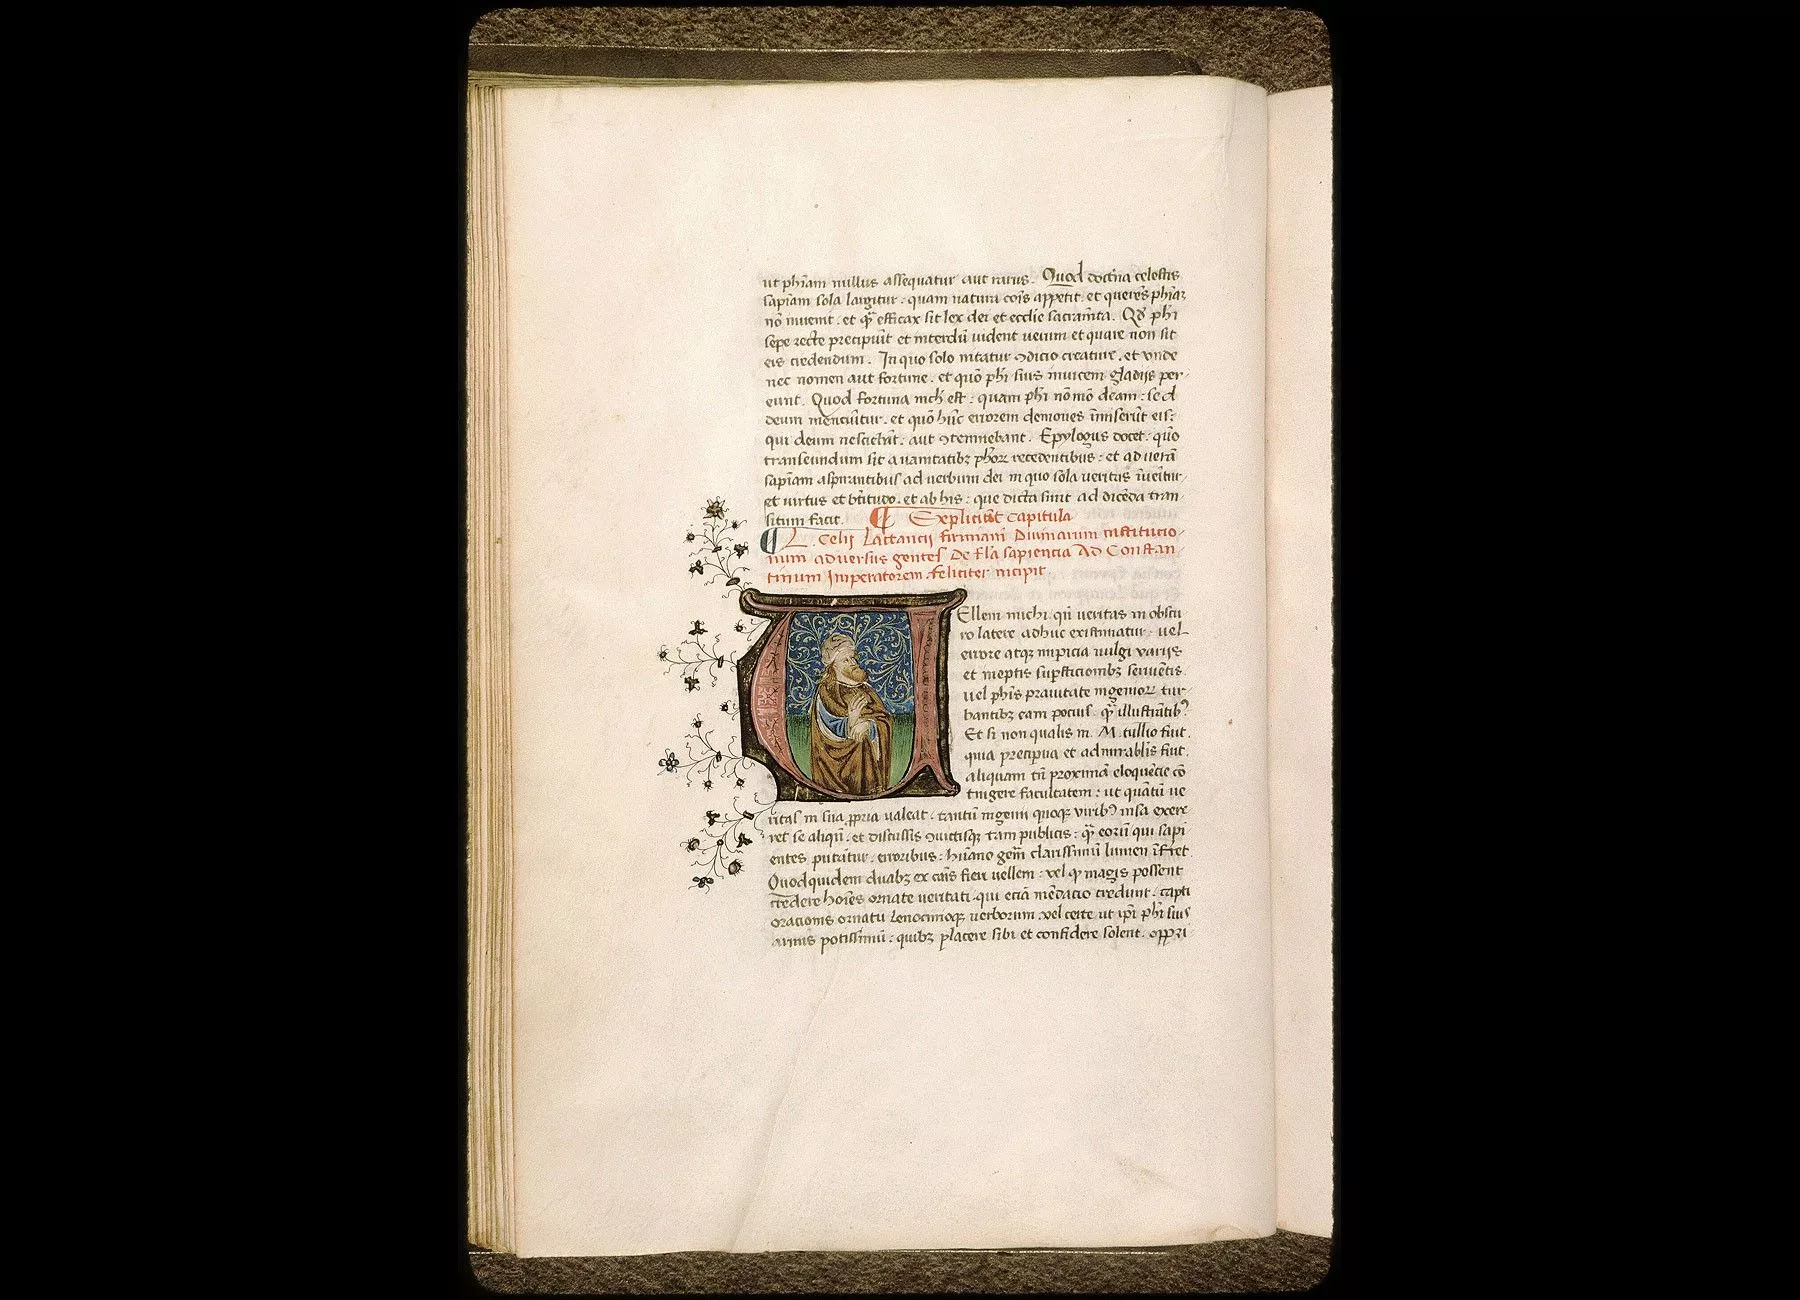 ut phiam nullus assequatur aut rarus. Quod doctrina celestis
sapiam sola largitur: quam natura cois appetit. et querens phiar
no inuenit. et qz efficax sit lex dei et ecclie sacramta. Qd phi
sepe recte precipiut et interdu uident uerum et quare non sit
eis credendum. In quo solo nitatur condicio creature. et unde
nec nomen aut fortune. et quo phi suis inuicem gladijs per
eunt. Quod fortuna nichil est: quam phi no mo deam: sed
deum mentiutur. et quo huc errorem demones imiserut eis:
qui deum nesciebat. aut contemnebant. Epylogus docet. quo
transeundum sit a uanitatibz phorz recedentibus: et ad uera
sapiam aspirantibus ad uerbum dei in quo sola ueritas iueitur
et uirtus et btitudo. et ab his: que dicta sunt ad diceda tran
situm facit. Expliciut Capitula
L. Celij Lactancij firmiani Diuinarum institucio
num aduersus gentes De fla sapiencia Ad Constan
tinum Imperatorem. feliciter incipit
UEllem michi qn ueritas in obscu
ro latere adhuc existimatur. uel
errore atqz impicia uulgi varijs
et ineptis supsticionibz seruietis
uel phis prauitate ingeniorz tur
bantibz eam pocius. qz illustratibz
Et si non qualis in M. tullio fuit.
quia precipua et admirablis fuit.
aliquam tn proxima eloquecie co
tingere facultatem: ut quatu ue
ritas in sua ppria ualeat. tantu ingenij quoqz viribz nisa exere
ret se aliqn. et discussis conuictisqz tam publicis: qz eoru qui sapi
entes putatur. erroribus: humano geni clarissimu lumen iferret.
Quod quidem duabz ex cais fieri uellem: uel qz magis possent
credere hoies ornate ueritati. qui ecia medacio credunt. capti
oracionis ornatu lenocinioqz uerborum. vel certe ut ipi phi suis
armis potissimu: quibz placere sibi et confidere solent. oppri